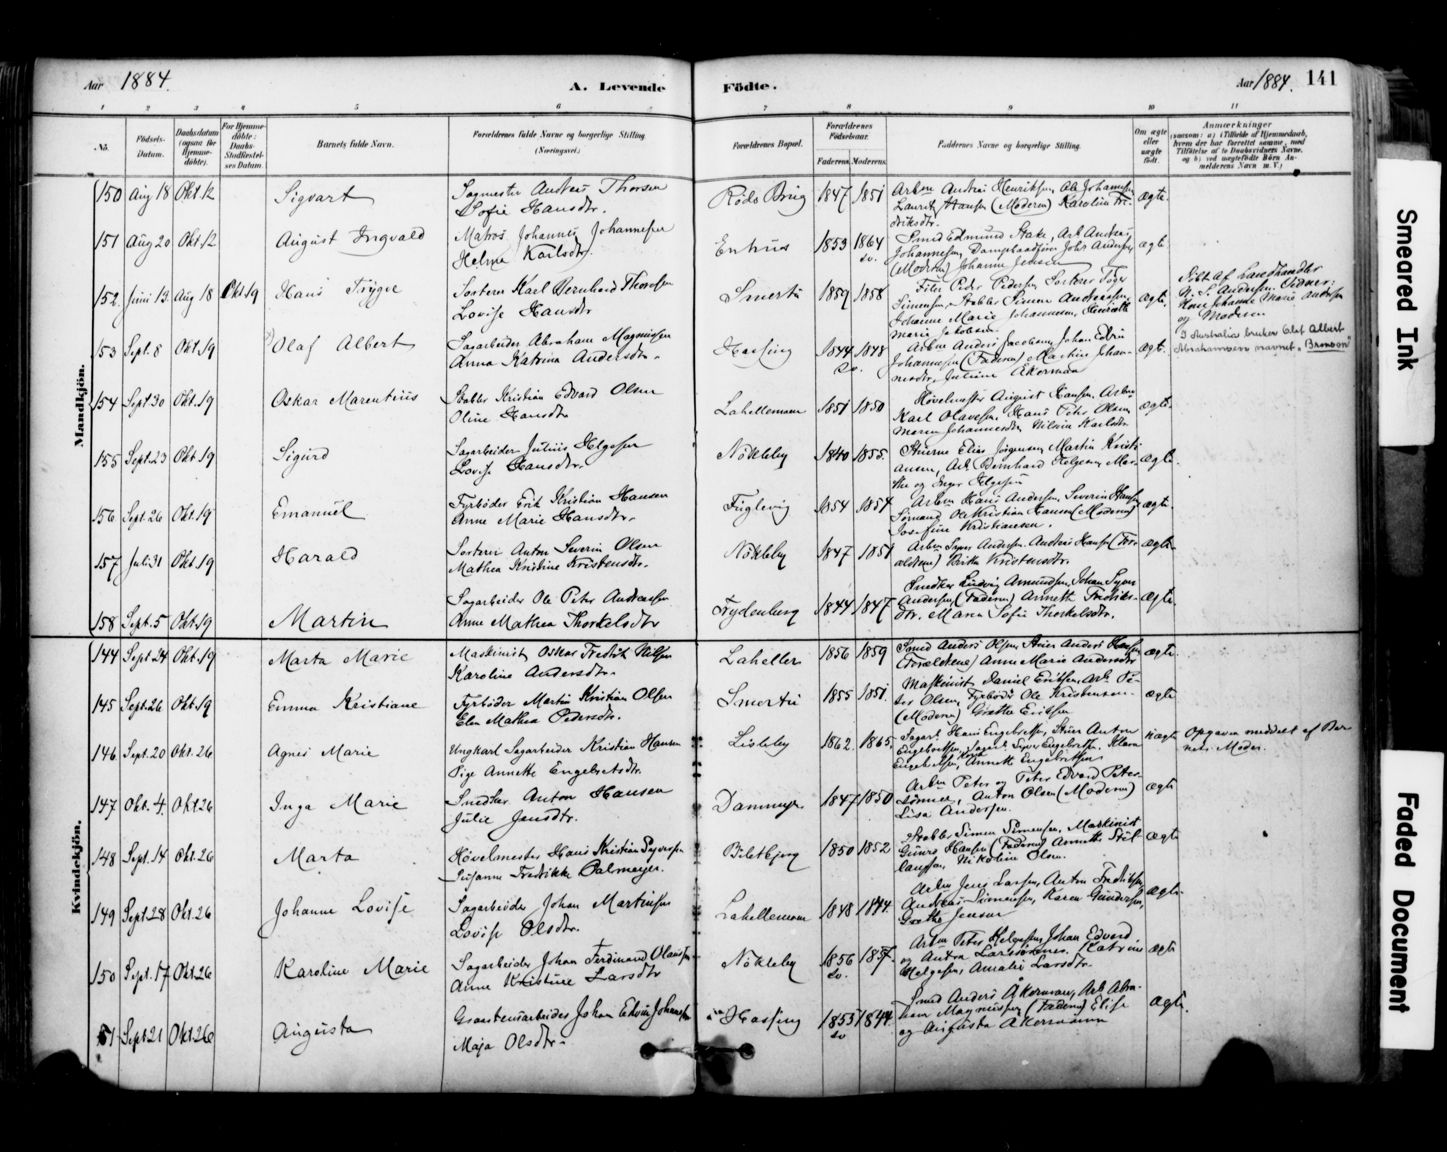 Aar 1884. A. Levende Födte. Aar 1884. 141
1 2 3 4 5 6 7 8 9 10 11
No. Födsels-Datum. Daabsdatum (ogsaa for Hjemme-döbte). For Hjemme-döbte: Daabs-Stadfæstel-ses Datum. Barnets fulde Navn. Forældrenes fulde Navne og borgerlige Stilling. (Næringsvei.) Forældrenes Bopæl. Forældrenes Födselsaar. Faderens. Moderens. Faddernes Navne og borgerlige Stilling. Om ægte eller uægte födt. Anmærkninger
Mandkjön.
150 Aug 18 Okt. 12 Sigvart Sagmester Andreas Thorsen
Sofie Hansdtr. Röds Brug 1847 1851 Arbm Andreas Henriksen, Ole Johannesen
Laurits Hansen (Moderen) Karoline Fre-
driksdtr. ægte.
151 Aug 20 Okt. 12 August Ingvald Matros Johannes Johannesen
Helma Karlsdtr. Enhus 1853 1864
sv. Smed Edmund Stake, Arb. Andreas
Johannesen, Dampbaadförer Johs Andersen
(Moderen) Johanne Jensen ægte
152 Juni 13 Aug 18 Okt. 19 Hans Trygve Sorterer Karl Bernhard Thoresen
Lovise Hansdtr Smertu 1859 1858 Filer Peder Pedersen, Sorterer Töger
Simensen, Stabber Simen Andreassen,
Johanne Marie Johannessen,
Maria Jakobsen ægte. Döbt af Landhandler
S. Andersen. Vidner:
Kone Johanne Marie Andersen
og Moderen
153 Sept. 8 Okt. 19 Olaf Albert Sagarbeider Abraham Magnussen
Anna Katrina Andersdtr. Hassing 1844 1848
sv. Arbm Anders Jacobsen, Johan Edvin
Johannesen (Faderen) Martine Johan-
nesdtr, Juliane Åkerman ægt. I Australia bruker Olaf Albert
Abrahamsen navnet „Bronson"
154 Sept 30 Okt. 19 Oskar Marentius Stabber Kristian Edvard Olsen
Oline Hansdtr Lahellemoen 1851 1850 Hövelmester August Hansen, Arbm
Karl Olavesen, Hans Peter Olsen
Maren Johannesdtr. Nilsia Karlsdtr. ægte.
155 Sept. 23 Okt. 19 Sigurd Sagarbeider Julius Helgesen
Lovise Hansdtr. Nökleby 1840 1855. Stuerne Elias Jörgensen, Martin Kristi-
ansen, Arb. Bernhard Helgesen, Mar-
the og Inger Helgesen ægte.
156 Sept. 26 Okt. 19 Emanuel Fyrböder Erik Kristian Hansen
Anne Marie Hansdtr. Fuglevig 1854 1854 Arbm Hans Andersen, Severin Hansen
Sömand Ole Kristian Hansen (Moderen)
Josefine Kristiansen. ægte.
157 Juli 31 Okt. 19 Harald Sorterer Anton Severin Olsen
Mathea Kristine Kristensdtr. Nökleby 1847 1851 Arbm Syver Andersen, Andreas Hansen (For-
ældrene) Britha Kristensdtr. ægte
158 Sept. 5 Okt. 19 Martin Sagarbeider Ole Peter Andreassen
Anne Mathea Thorkelsdtr Frydenberg 1844 1847 Snedker Ludvig Amundsen, Johan Syver
Andersen (Faderen) Annette Fredriks-
dtr. Maren Sofie Thorkelsdtr. ægte
Kvindekjön.
144 Sept. 24 Okt. 19 Marta Marie Maskinist Oskar Fredrik Nilsen
Karoline Andersdtr. Laheller 1856 1859 Smed Anders Olsen, Stuer Anders Hansen
(Forældrene) Anne Marie Andersdtr ægte
145 Sept. 26 Okt. 19 Emma Kristiane Fyrböder Martin Kristian Olsen
Elen Mathea Pedersdtr. Smertu 1855 1851. Maskinist Daniel Eriksen, Arb. Pe-
ter Olsen, Fyrböder Ole Kristensen
(Moderen) Grethe Eriksen ægte
146 Sept. 20 Okt. 26 Agnes Marie Ungkarl Sagarbeider Kristian Hansen
Pige Annette Engebretsdtr. Lisleby 1862. 1865. Sagarb. Hans Engebretsen, Stuer Anton
Engebretsen, Sagarb. Syver Engebretsen. Klara
Engebretsen, Kone Annette Engebretsen uægte Opgaven meddelt af Bar-
nets Moder.
147 Okt. 4. Okt 26 Inga Marie Snedker Anton Hansen
Julie Jensdtr. Dammyr 1847 1850 Arbm Peter og Peter Edvard Peter-
sönner, Anton Olsen (Moderen)
Lisa Andersen. ægte
148 Sept. 14 Okt. 26 Marta Hövelmester Hans Kristian Syversen
Susanne Fredrikke Palmeyer. Biletbjerg 1850 1852 Stabber Simen Simensen, Maskinist
Gunerius Hansen (Faderen) Annette Stil-
laugsen, Nikoline Olsen. ægte
149 Sept. 28 Okt. 26 Johanne Lovise Sagarbeider Johan Martinsen
Lovise Olsdtr. Lahellemoen 1848 1844. Arbm Jens Larsen, Anton Fredriksen,
Andreas Simensen, Karen Gundersen,
Grethe Jensen ægte.
150 Sept. 17 Okt. 26 Karoline Marie Sagarbeider Johan Ferdinand Olaussen
Anne Kristine Larsdtr Nökleby 1856 1857.
sv. Arbm Peter Helgesen, Johan Edvard
og Anton Larssönner. Katrine
Helgesen, Amalie Larsdtr. ægte
151 Sept 21 Okt. 26 Augusta Grovstensarbeider Johan Edvin Johansen
Maja Olsdtr. Hassing 1853 1844.
sv Smed Anders Åkermann, Arb. Abra-
ham Magnussen (Faderen) Elise
og Augusta Åkermann ægte.
Smeared Ink
Faded Document